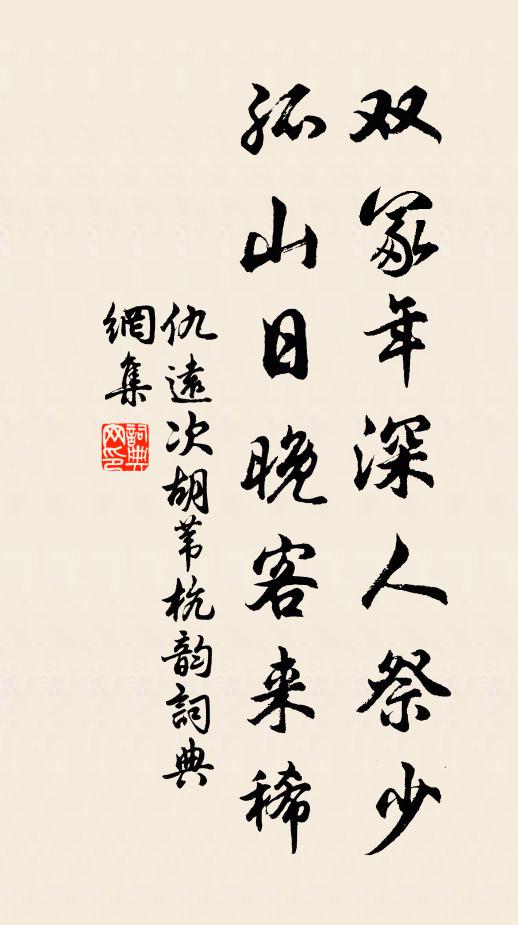 双冢年深人祭少
孤山日晚客来稀
仇遠次胡苇杭韵詞典
網集
詞典网印